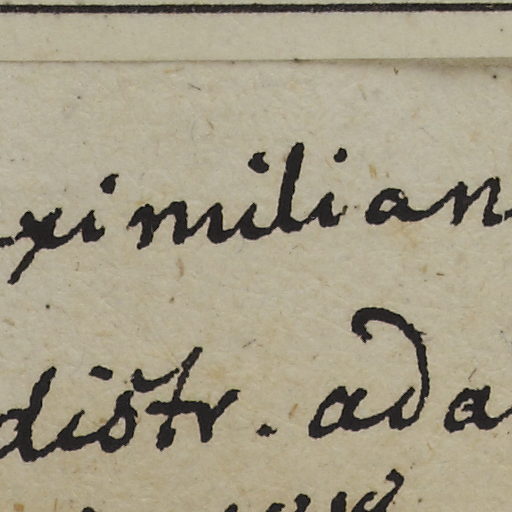 ximilian
distr. ada